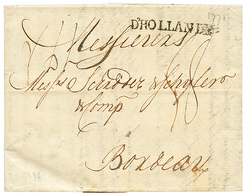 D'HOLLANDE
Messieurs
Mess^rs Schröder & Schyler
& Comp
a
Bordeaux